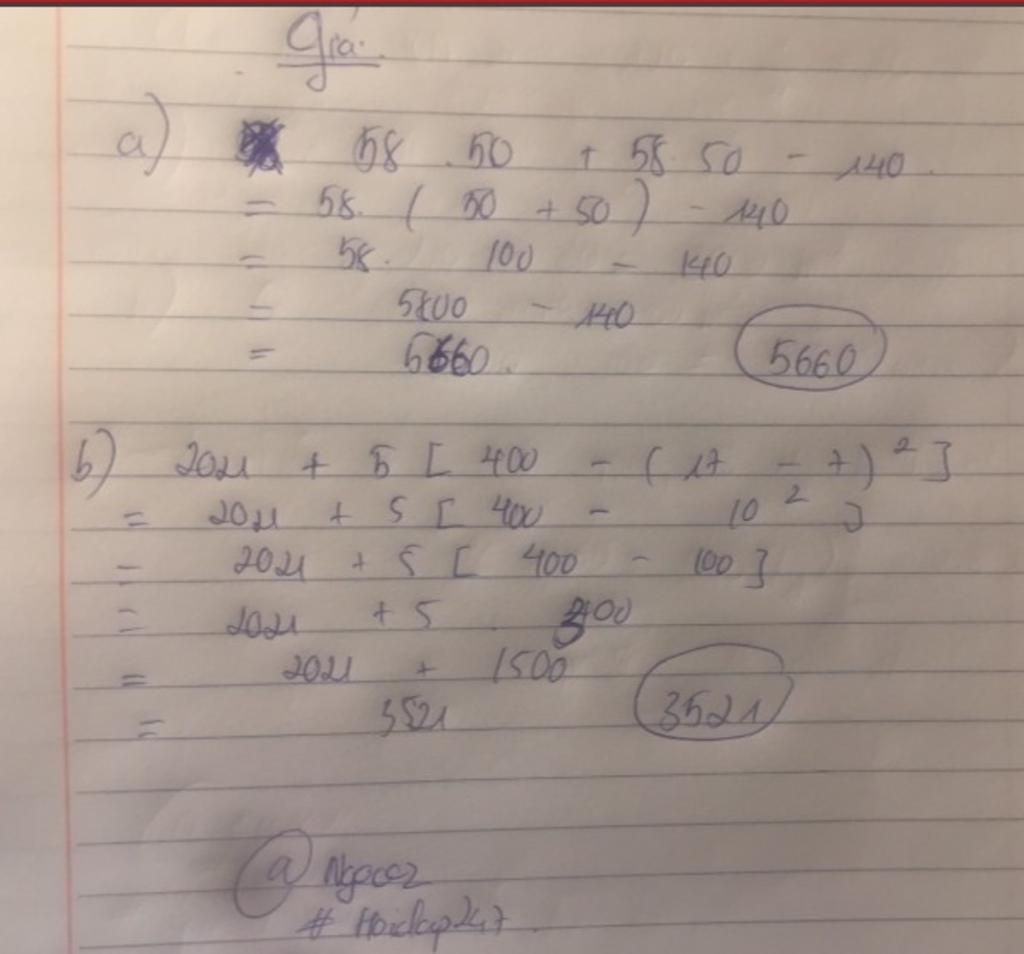 Giải
a) 58 . 50 + 58. 50 - 140
= 58. ( 50 + 50 ) - 140
= 58. 100 - 140
= 5800 - 140
= 5660. 5660
b) 2021 + 5 [ 400 - ( 17 - 7 ) ² ]
= 2021 + 5 [ 400 - 10 ² ]
= 2021 + 5 [ 400 - 100 ]
= 2021 + 5 . 300
= 2021 + 1500
= 3521 3521
@ Ngocz
# Hoidap247